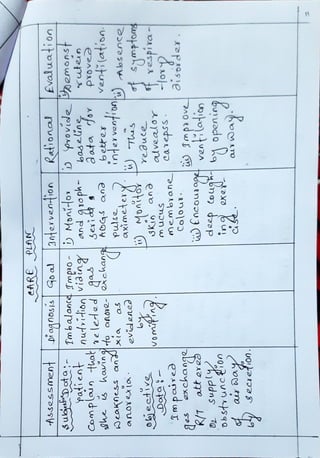 CARE PLAN
Assessment
Subject Data:-
Patient
Complain that
she is having
weakness and
anorexia.
Objective
Data:-
Impaired
gas exchange
R/T altered
O2 supply
obstrunction
of airway
by secretion.
Diagnosis
Imbalance
nutrition
releted
to anore-
xia as
evidenced
by
vomiting.
Goal
Impro-
viding
gas
exchange
Intervention
i) Monitor
and graph-
ABGs and
pulse
aximetery
ii) Monitor
skin and
mucus
membrane
colour.
iii) Encourage
deep cough-
ing exer-
cise
Rational
i) Provide
baseline
data for
better
intervention
ii) This
reduce
alveolor
iii) Improve
ventilation
by opening
airway.
Evaluation
i) Demonst
proved
ventilation.
ii) Absence
of symptoms
of respira-
-tory
disorder.